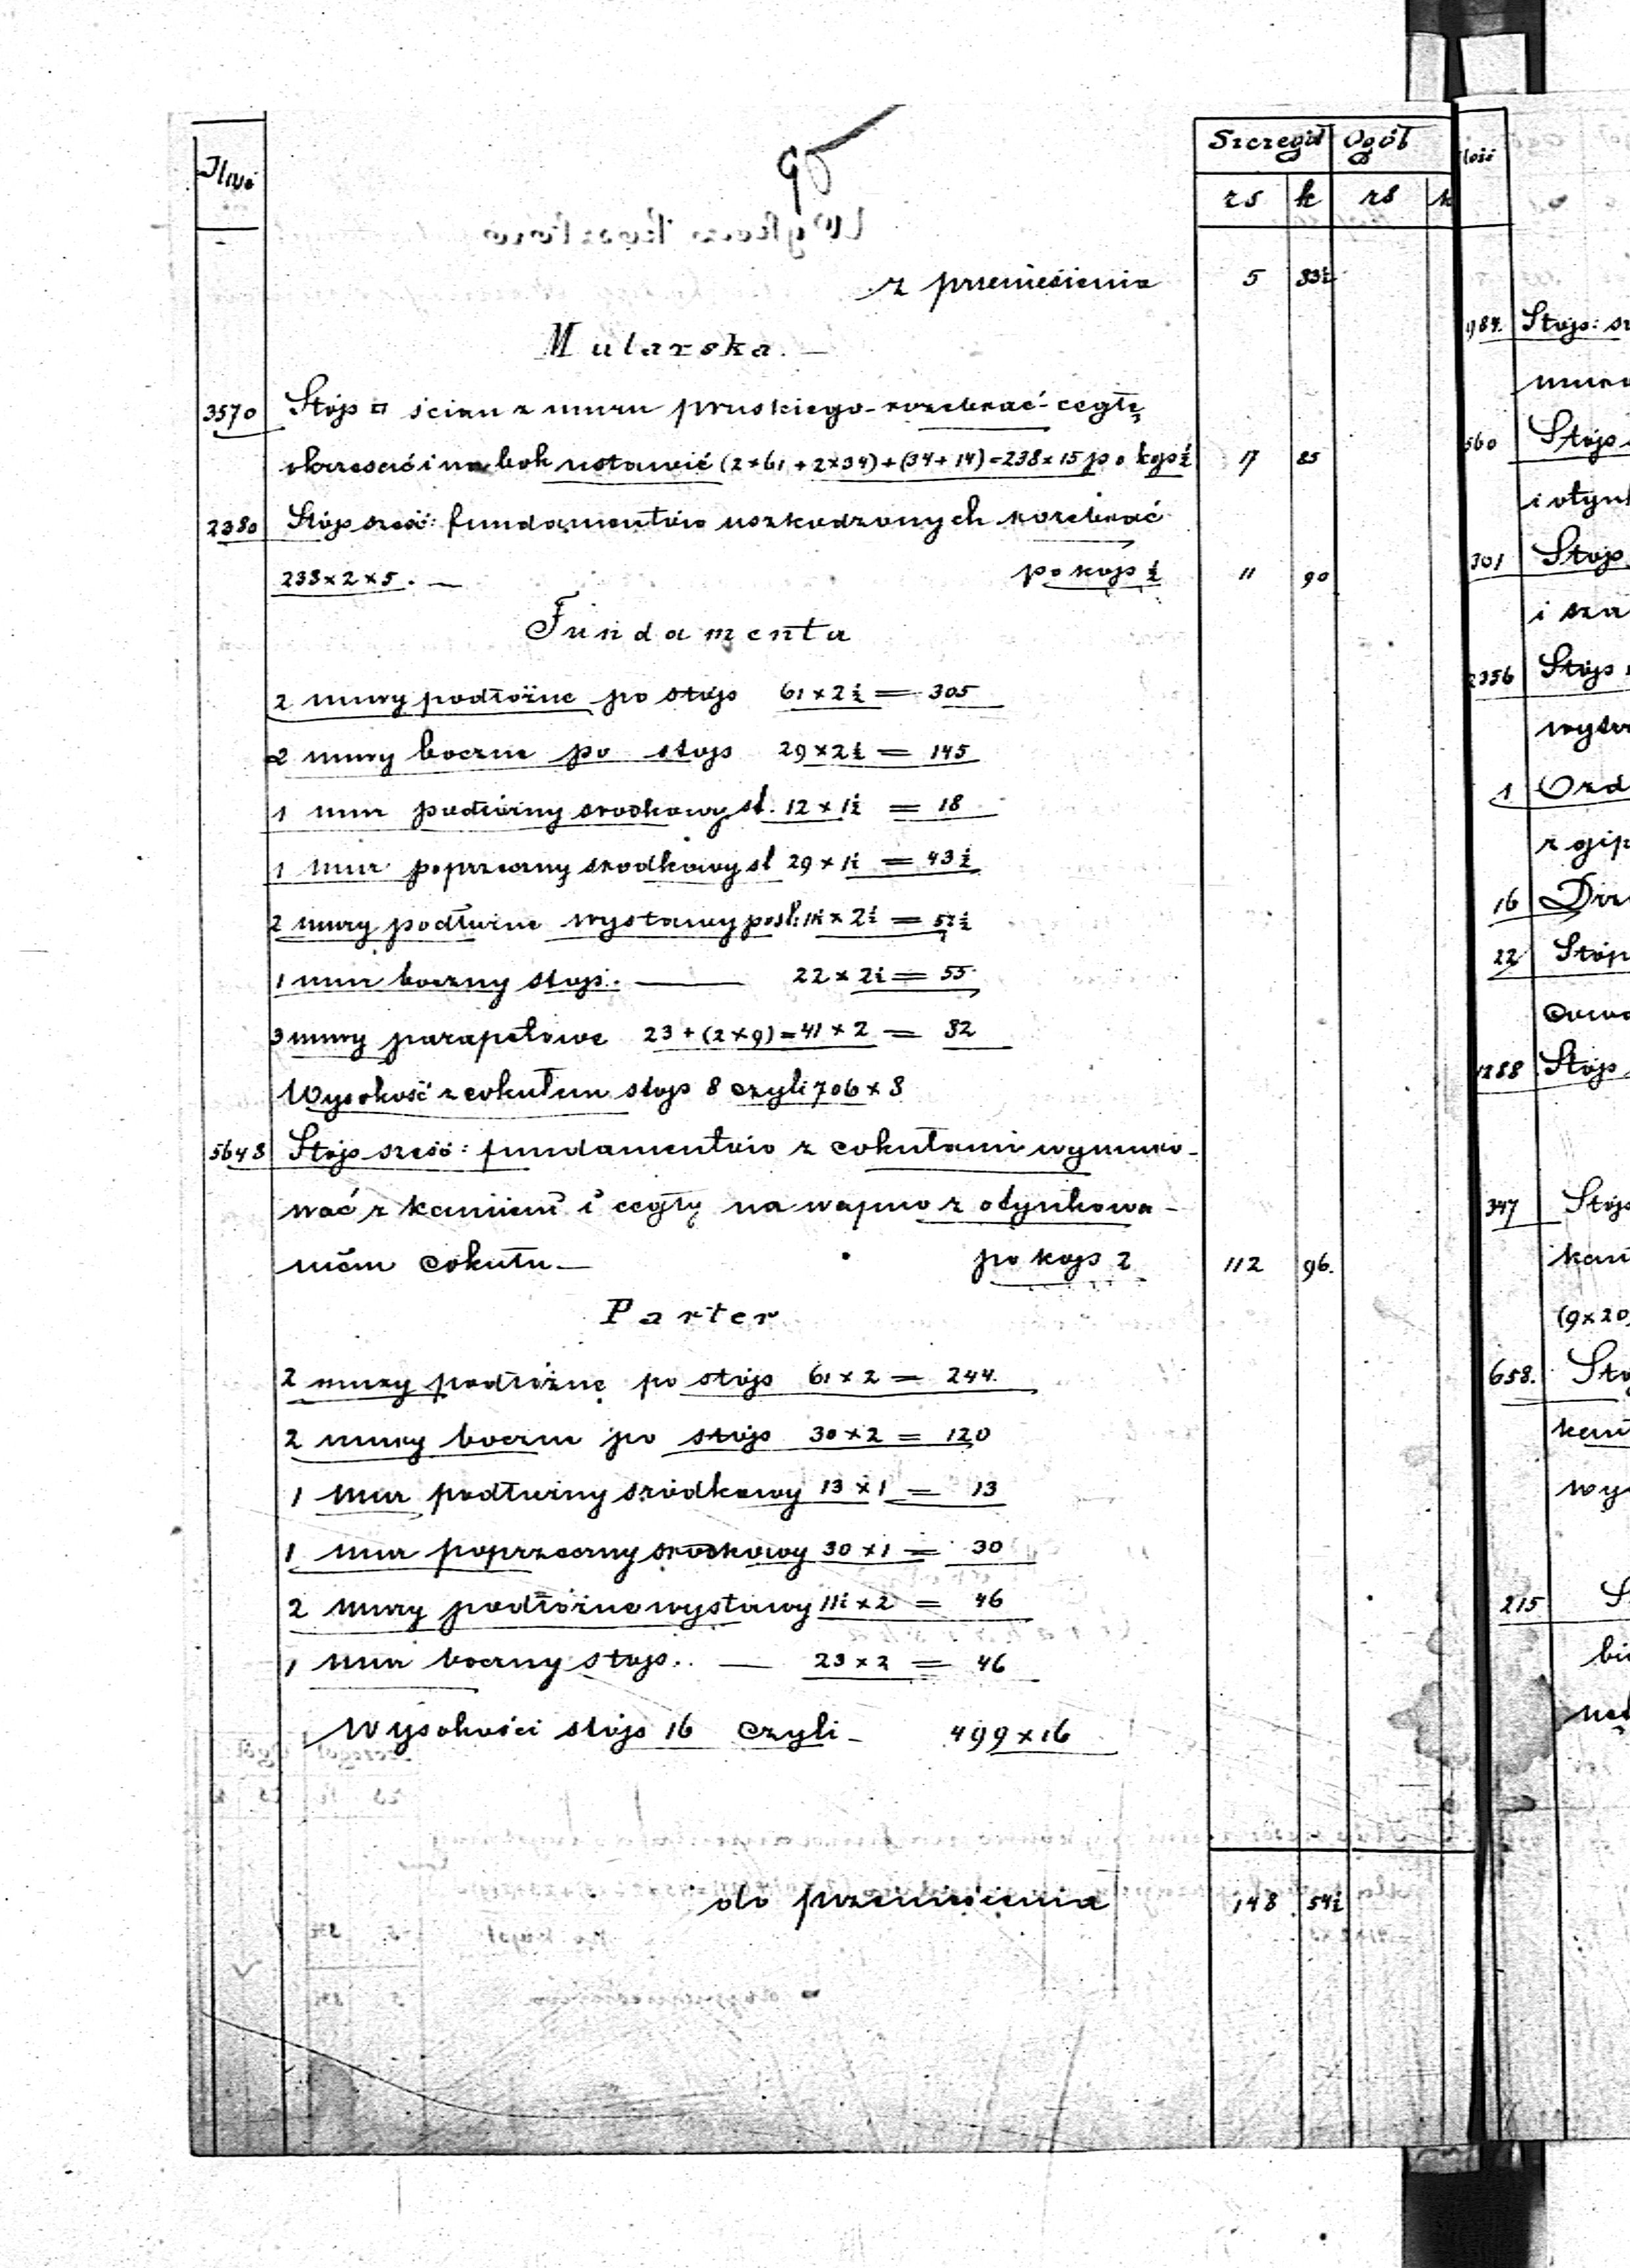 95
Ilość
Szczegół Ogół
rs k rs k
z przeniesienia 5 83½
Mularska.
3570 Stóp □ ścian z muru pruskiego rozebrać cegłę
okrzesać i na bok ustawić (2×61+2×34)+(34+14)=238×15 po kop ½ 17 85
2380 Stóp sześć: fundamentów uszkodzonych rozebrać
238×2×5. — po kop ½ 11 90
Fundamenta
2 mury podłóżne po stóp 61×2½ = 305
2 mury boczne po stóp 29×2½ = 145
1 mur podłóżny srodkowy st. 12×1½ = 18
1 mur poprzeczny srodkowy st 29×1½ = 43½
2 mury podłużne wystawy po st: 11½×2½ = 57½
1 mur boczny stóp. — 22×2½ = 55
3 mury parapetowe 23+(2×9)=41×2 = 82
Wysokość z cokułem stóp 8 czyli 706×8
5648 Stóp sześć: fundamentów z cokułami wymuro-
wać z kamieni i cegły na wapno z otynkowa-
niem cokułu — po kop 2 112 96.
Parter
2 mury podłóżne po stóp 61×2 = 244.
2 mury boczne po stóp 30×2 = 120
1 mur podłużny środkowy 13×1 = 13
1 mur poprzeczny srodkowy 30×1 = 30
2 mury podłóżne wystawy 11½×2 = 46
1 mur boczny stóp. — 23×2 = 46
Wysokości stóp 16 czyli — 499×16
do przeniesienia 148 54½
984. Stóp: sz
560 Stóp
i otynk
301 Stóp
i sza
2356 Stóp
1
z gip
16
22 Stóp
1288 Stóp
347 Stóp
(9×20)
658.
215